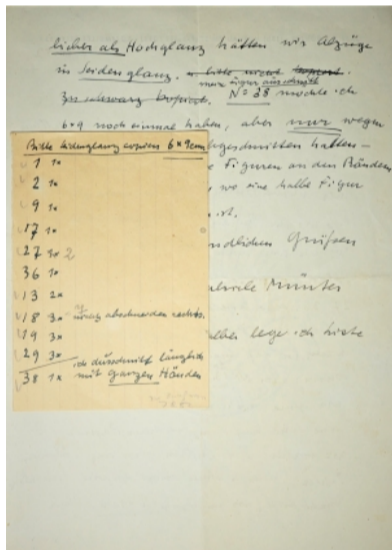 lieber als Hochglanz hätten wir Abzüge
in Seidenglanz. bitte nicht kopiert.
nur
Zu schwarz kopiert. N = 38 möchte ich
6×9 noch einmal haben, aber nur wegen
abgeschnitten hatten –
Figuren an den Rändern
, wo eine halbe Figur
ist.
ndlichen Grüßen
Münter
lege ich bitte
Bitte seidenglanz copieren 6 × 9 cm
1 1×
2 1×
9 1×
17 1×
27 3× 2
36 1×
13 2×
18 3× abschneiden rechts.
19 3×
29 3×
38 1× ich Ausschnitt länglich
mit ganzen Händen